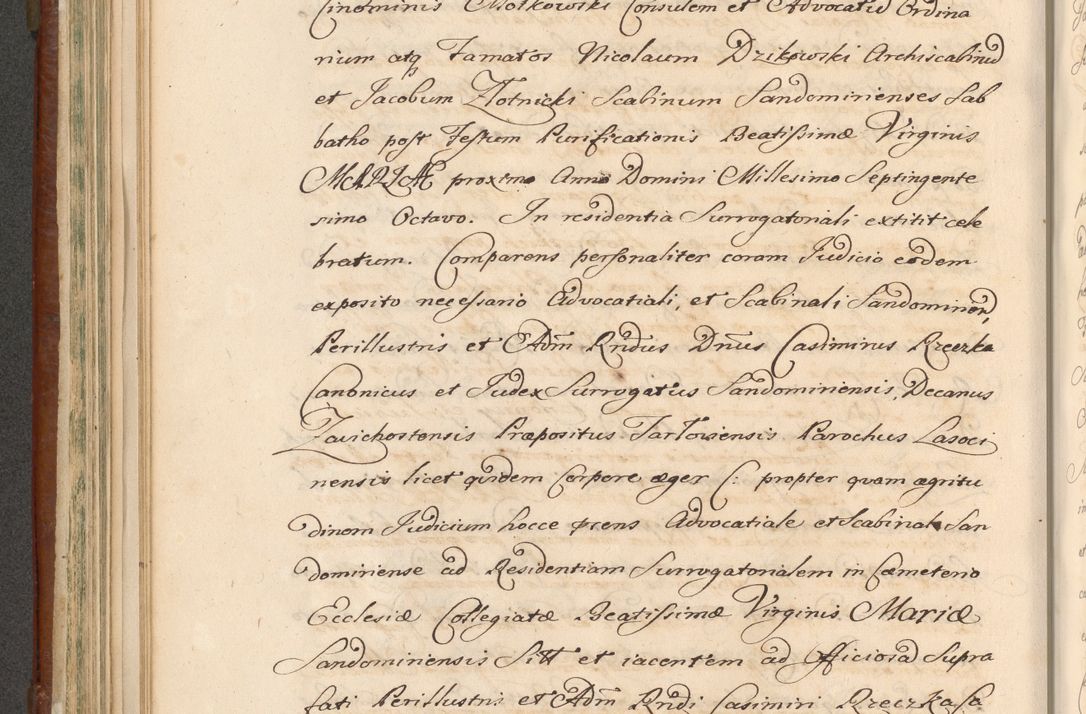 Cinominis Motkowski Consulem et Advocatũ Ordina
rium atq Famatos Nicolaum Dzikowski Archiscabinũ
et Jacobum Złotnicki Scabinum Sandomirienses Sab
batho post Festum Purificationis Beatissimæ Virginis
MARIÆ proximo Anno Domini Millesimo Septingente
simo Octavo. In residentia Surrogatoriali extitit cele
bratum. Comparens personaliter coram Judicio eodem
exposito necessario Advocatiali, et Scabinali Sandomirien̄,
Perillustris et Adm̄ Rndus Dnus Casimirus Rzeczka
Canonicus et Judex Surrogatus Sandomiriensis, Decanus
Zavichostensis Præpositus Tarłoviensis Parochus Lasoci
nensis licet quidem Corpore æger (: propter quam ægritu
dinem Judicium hocce prens Advocatiale et Scabinale San
domiriense ad Residentiam Surrogatorialem in Cæmeterio
Ecclesiæ Collegiatæ Beatissimæ Virginis Mariæ
Sandomiriensis Sitt et iacentem ad Officiosã Supra
fati Perillustris et Adm̄ Rndi Casimiri Rzeczka Ca